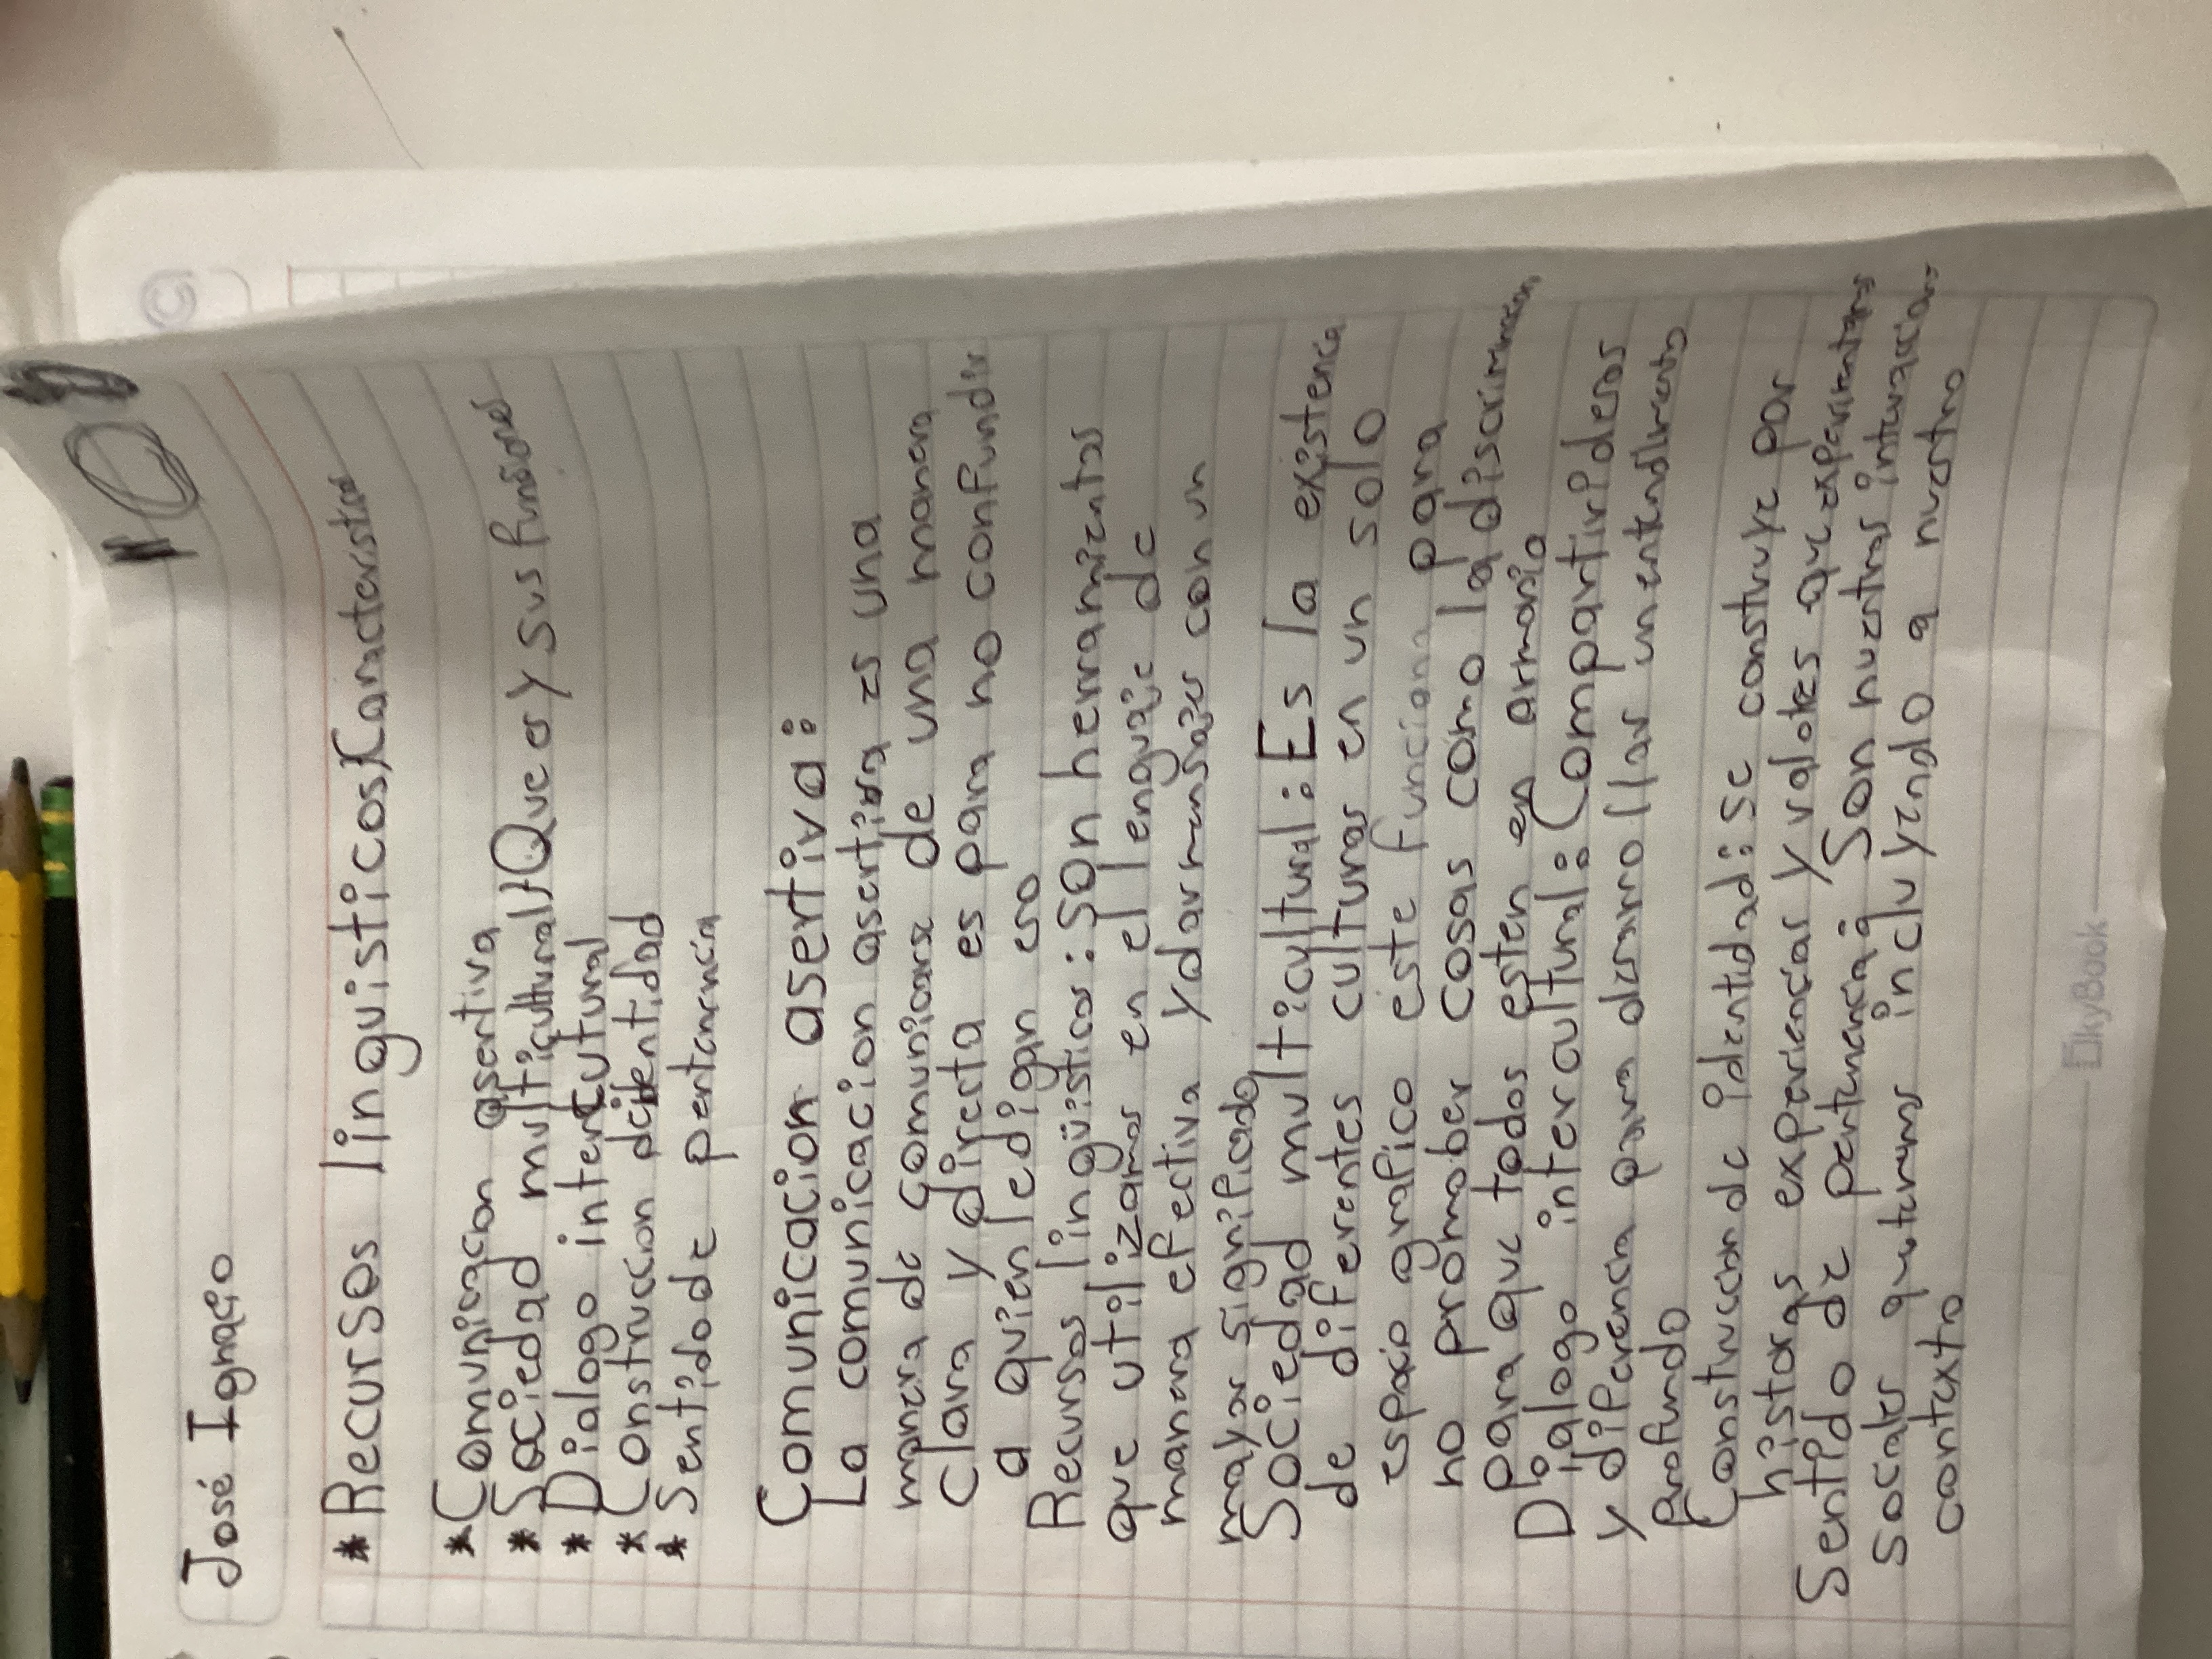 10
José Ignacio
* Recursos linguisticos
* Comunicacion asertiva
* Sociedad multicultural
Que es y sus funsiones
* Dialogo intercutural
* Construccion de identidad
* Sentido de pertanencia
Comunicacion asertiva:
La comunicacion asertiva es una
manera de comunicarse de una manera
clara y directa es para no confundir
a quien le digan eso
Recursos lingüisticos: son herramientas
que utilizamos en el lenguaje de
manera efectiva y dar mensajes con un
mayor significado
Sociedad multicultural: Es la existencia
de diferentes culturas en un solo
espacio grafico este funciona para
no promober cosas como la discriminacion
para que todos esten en armonia
Dialogo intercultural: Compartir ideas
y diferencia para desarrollar un entendimiento
profundo
Construccion de identidad: se construye por
historias experiencias y valores que experimentamos
Sentido de pertenencia: Son nuestras interacciones
sociales que tenemos incluyendo a nuestro
contexto
SkyBook